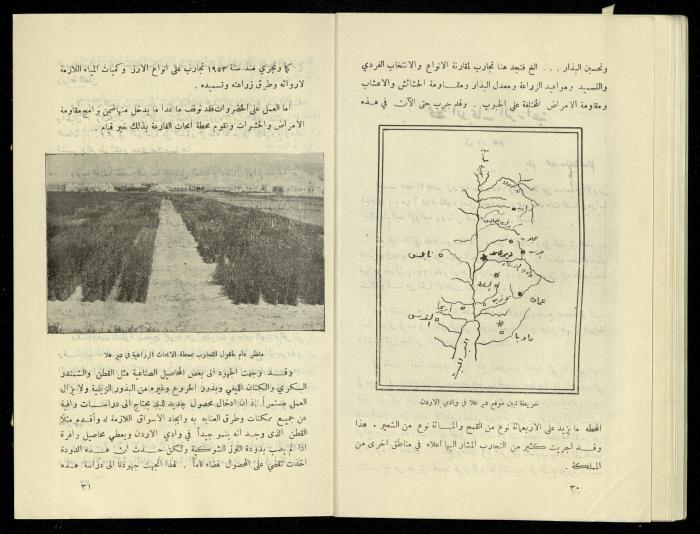 وتحسين البذار . . . الخ فتجد هنا تجارب لمقارنة الانواع والانتخاب الفردي
والتسميد ومواعيد الزراعة ومعدل البذار ومقاومة الحشائش والاعشاب
ومقاومة الامراض المختلفة على الحبوب . وقد جرب حتى الآن في هذه
اربد
عجلون
جرش
نابلس
دير علا
السلط
عمان
اريحا
القدس
مادبا
البحر الميت
خريطة تبين موقع دير علا في وادي الاردن
المحطة ما يزيد على الاربعمائة نوع من القمح والمائة نوع من الشعير . هذا
وقد اجريت كثير من التجارب المشار اليها اعلاه في مناطق اخرى من
المملكة .
٣٠
كما وتجري منذ سنة ١٩٥٣ تجارب على انواع الارز وكميات المياه اللازمة
لاروائه وطرق زراعته وتسميده .
اما العمل على الخضروات فقد توقف ما عدا ما يدخل منها ضمن برامج مقاومة
الامراض والحشرات وتقوم محطة ابحاث الفارعة بذلك خير قيام
منظر عام لحقول التجارب بمحطة الابحاث الزراعية في دير علا
وقد وجهت الجهود الى بعض المحاصيل الصناعية مثل القطن والشمندر
السكري والكتان الليفي وبذور الخروع وغيره من البذور الزيتية ولا يزال
العمل مستمراً إذ ان ادخال محصول جديد للبلاد يحتاج الى دراسات وافية
عن جميع ممكنات وطرق العناية به وايجاد الاسواق اللازمة له وأقدم مثلاً
القطن الذي وجد انه ينمو جيداً في وادي الاردن ويعطي محاصيل وافرة
اذا لم يصب بدودة اللوز الشوكية ولكن حدث أن هذه الدودة
اخذت تقضي على المحصول قضاء تاماً . لهذا اتجهت جهودنا الى دراسة هذه
٣١